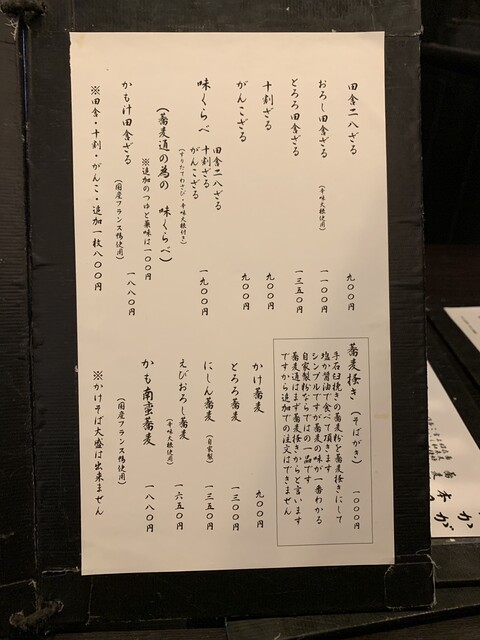 田舎二八ざる 九〇〇円
おろし田舎ざる (辛味大根使用) 一一〇〇円
とろろ田舎ざる 一三五〇円
十割ざる 九〇〇円
がんこざる 九〇〇円
味くらべ 田舎二八ざる 十割ざる がんこざる 一九〇〇円
(すりたてわさび・辛味大根付き)
(蕎麦通の為の 味くらべ)
※追加のつゆと薬味は一〇〇円
かも汁田舎ざる 一八八〇円
(国産フランス鴨使用)
※田舎・十割・がんこ・追加一枚八〇〇円
蕎麦掻き (そばがき) 一〇〇〇円
手石臼挽きの蕎麦粉を蕎麦掻きにして
塩か醤油で食べて頂きます
シンプルですが蕎麦の味が一番わかる
自家製粉ならではの一品です
蕎麦通はまず蕎麦掻きからと言います
ですから追加での注文はできません
かけ蕎麦 九〇〇円
とろろ蕎麦 一三〇〇円
にしん蕎麦 (自家製) 一三五〇円
えびおろし蕎麦 一六五〇円
(辛味大根使用)
かも南蛮蕎麦 一八八〇円
(国産フランス鴨使用)
※かけそば大盛は出来ません